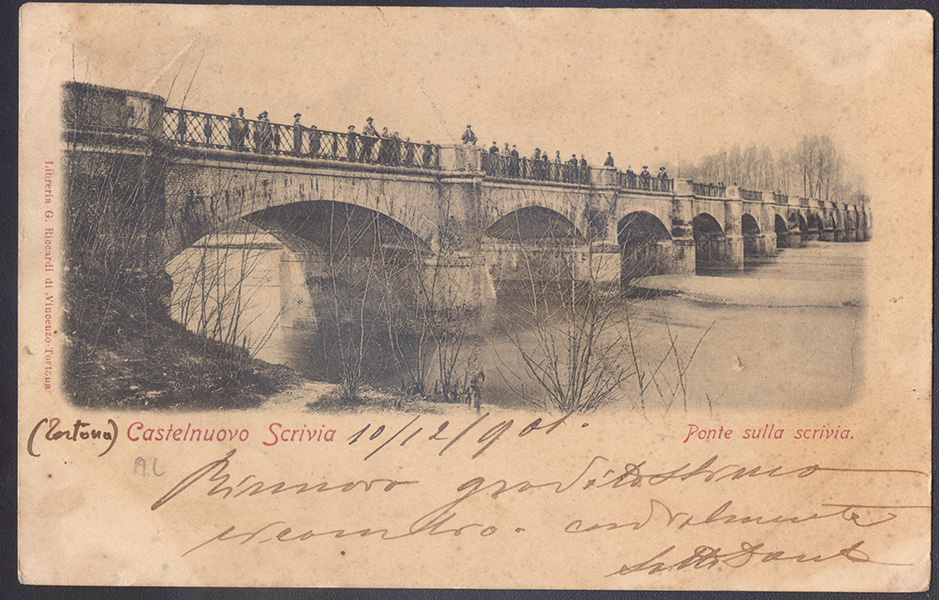 Libreria G. Riccardi di Vincenzo-Tortona
(Tortona) Castelnuovo Scrivia 10/12/901. Ponte sulla scrivia.
Rinnovo graditissimo
ricambio. cordialmente